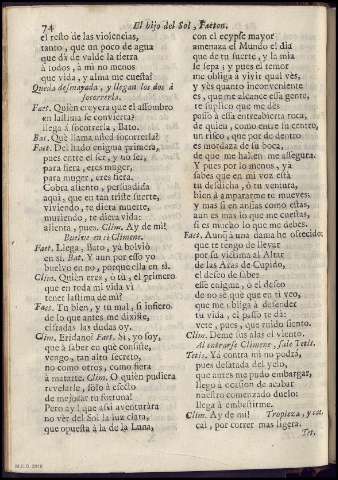 74
El hijo del Sol, Faeton.
el resto de las violencias,
tanto, que un poco de agua
que dà de valde la tierra
à todos, à mi no menos
que vida, y alma me cuesta!
Queda desmayada, y llegan los dos à
socorrerla.
Faet. Quien creyera que el assombro
en lastima se convierta?
llega à socorrerla, Bato.
Bat. Què llama usted socorrerla?
Faet. Del hado enigma primera,
pues entre el ser, y no ser,
para fiera, eres muger,
para muger, eres fiera.
Cobra aliento, persuadida
aqui, que en tan triste suerte,
viviendo, te diera muerte,
muriendo, te diera vida:
alienta, pues. Clim. Ay de mi!
Buelve en sì Climene.
Faet. Llega, Bato, yà bolviò
en sì. Bat. Y aun por esso yo
buelvo en no, porque ella en sì.
Clim. Quien eres, ò tù, el primero
que en toda mi vida vi
tener lastima de mi?
Faet. Tu bien, y tu mal, si infiero
de lo que antes me dixiste,
cifradas las dudas oy.
Clim. Eridano? Faet. Si, yo soy,
que à saber en què consiste,
vengo, tan alto secreto,
no como otros, como fiera
à matarte. Clim. O quien pudiera
revelarle, solo à efecto
de mejorar tu fortuna!
Pero ay! que assi aventuràra
no vèr del Sol la luz clara,
que opuesta à la de la Luna,
con el eclypse mayor
amenaza el Mundo el dia
que de tu suerte, y la mia
se sepa; y pues el temor
me obliga à vivir qual vès,
y vès quanto inconveniente
es, que me alcance essa gente,
te suplico que me dès
passo à essa entreabierta roca,
de quien, como entre su centro,
un risco, que por de dentro
es mordaza de su boca,
de que me hallen me assegura.
Y pues por lo menos, ya
sabes que en mi voz està
tu desdicha, ò tu ventura,
bien à ampararme te mueves,
y mas si en ansias como estas,
aun es mas lo que me cuestas,
si es mucho lo que me debes.
Faet. Aunq̃ à una dama he ofrecido,
que te tengo de llevar
por su victima al Altar
de las Aras de Cupido,
el deseo de saber
esse enigma, ò el deseo
de no sè què que en tì veo,
que me obliga à defender
tu vida, el passo te dà:
vete, pues, que ruido siento.
Clim. Deme sus alas el viento.
Al entrarse Climene, sale Tetis.
Tetis. Yà contra mi no podrà,
pues desatada del yelo,
que antes me pudo embargar,
llego à ocasion de acabar
nuestro comenzado duelo:
llega à embestirme.
Clim. Ay de mi! Tropieza, y cae
cai, por correr mas ligera.
Tet.